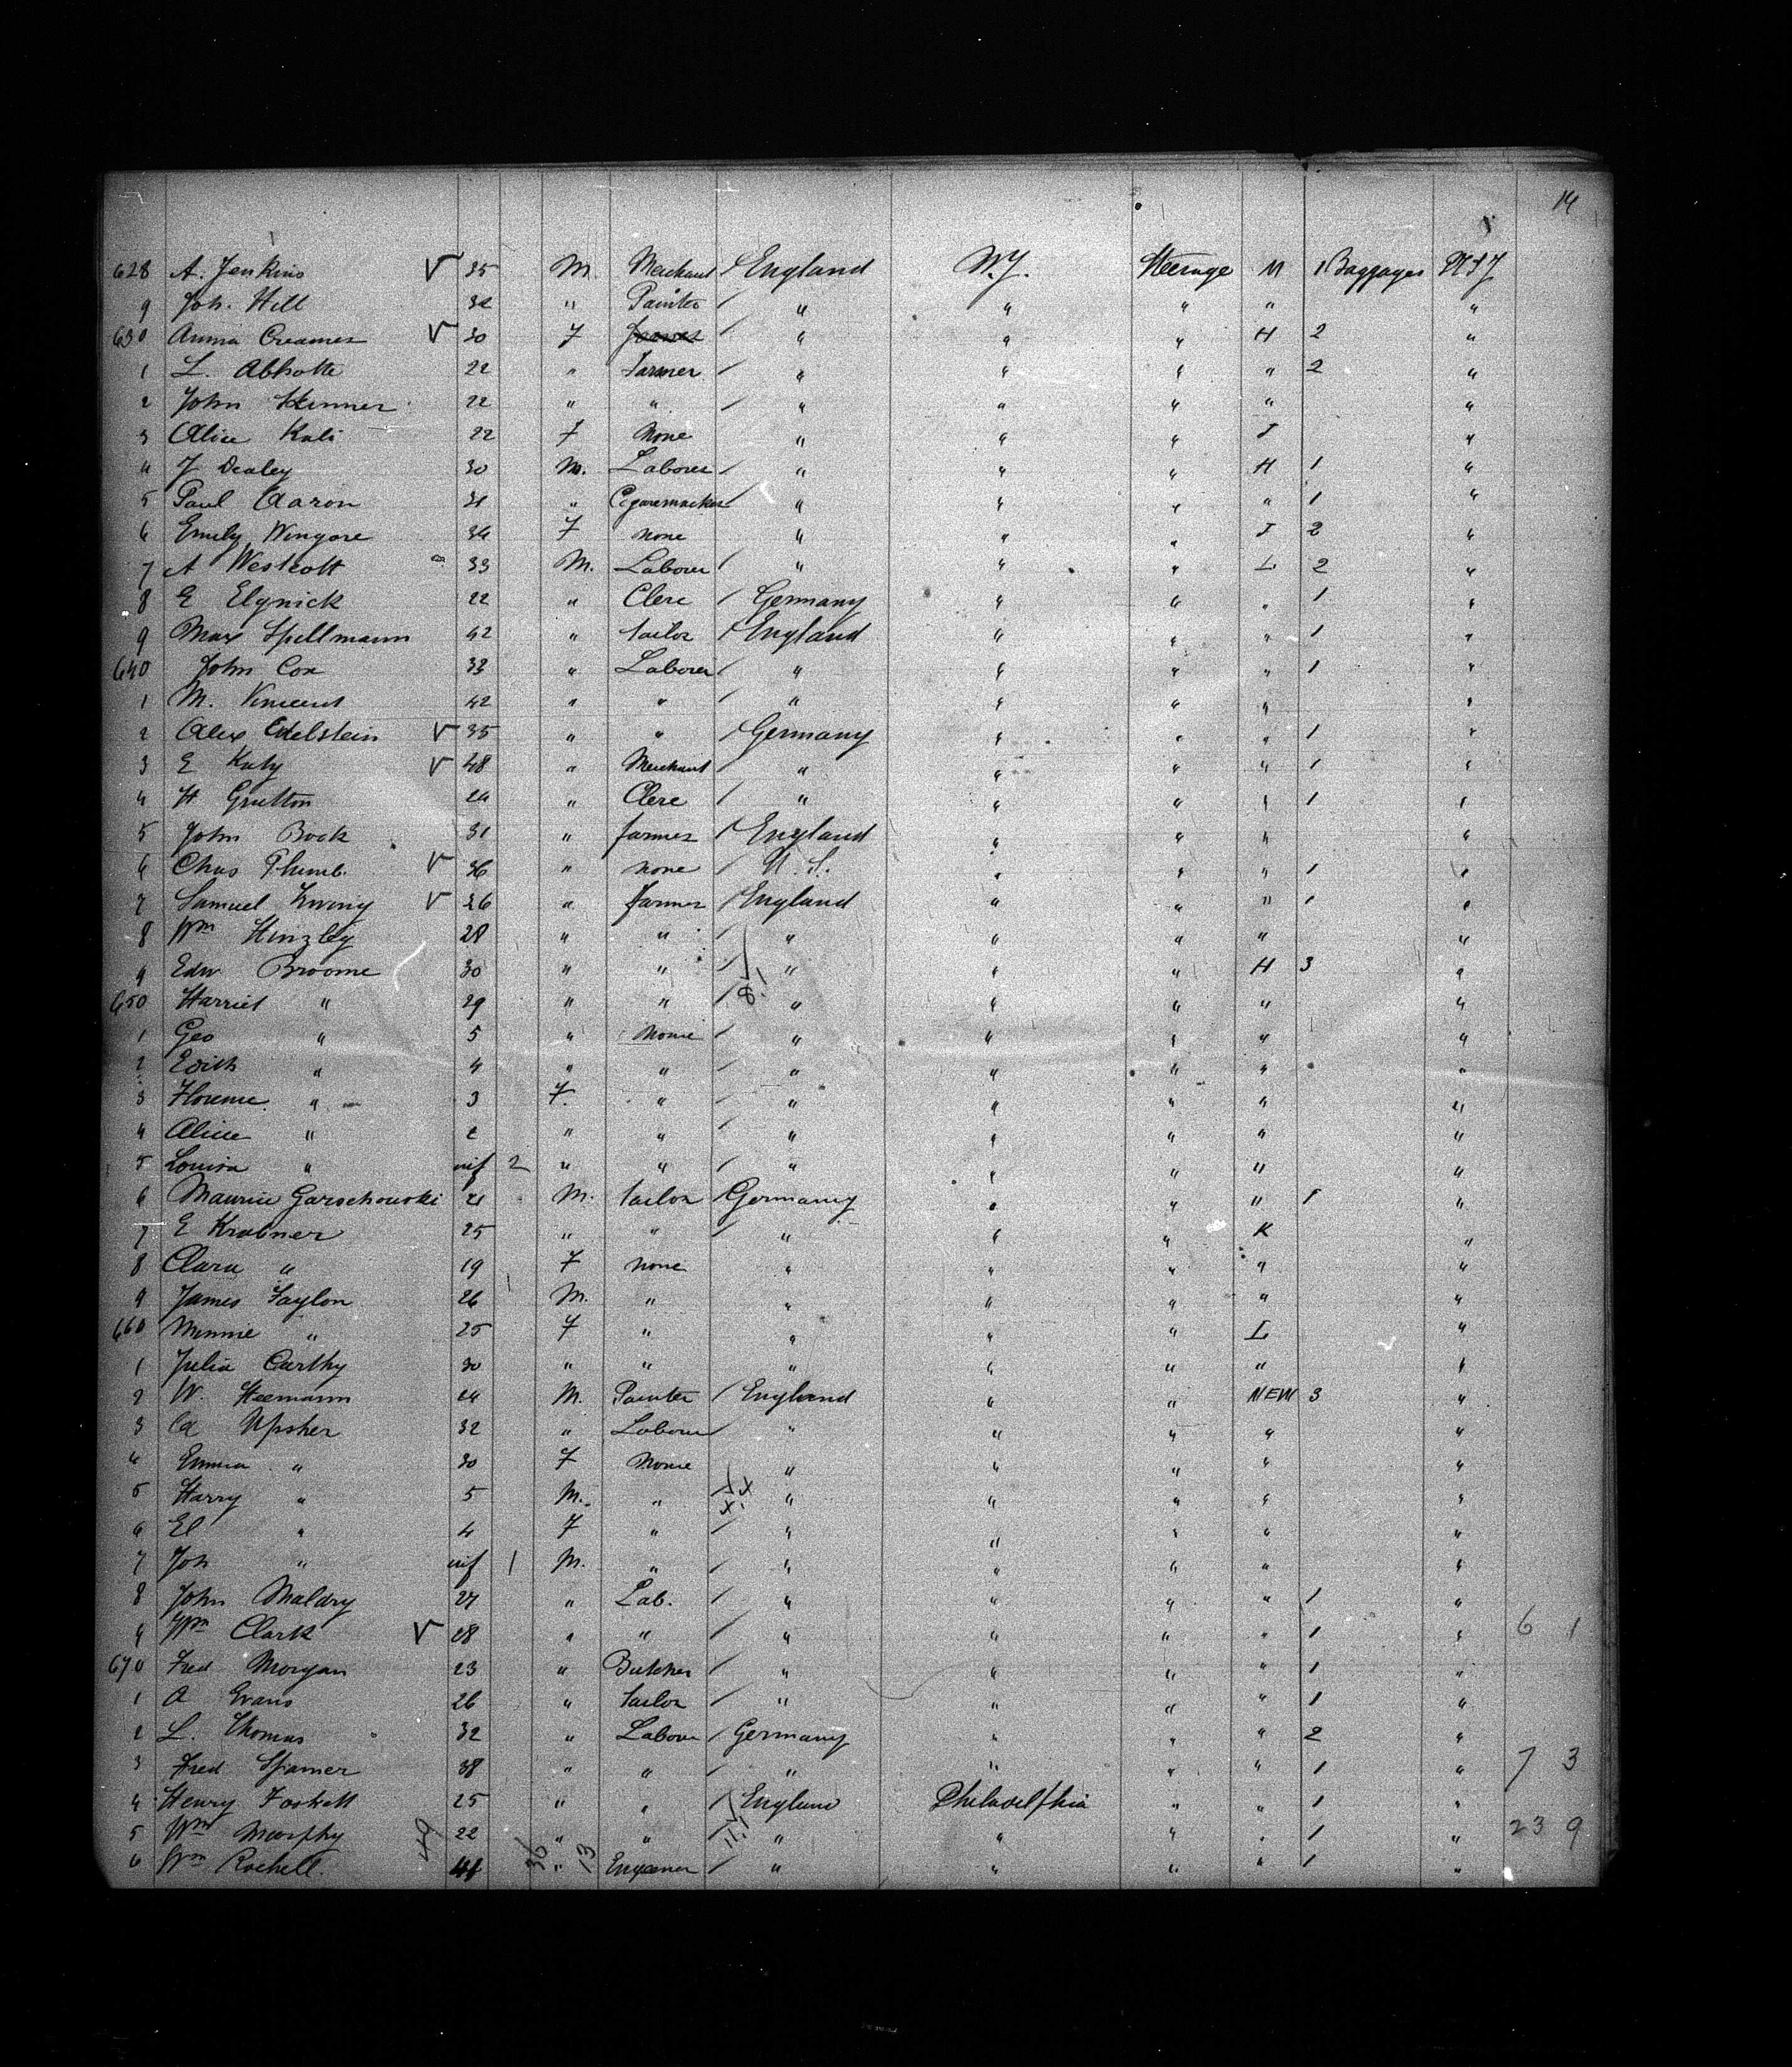 14
628 A. Jenkins V 35 M. Merchant / England N.Y. Steerage M 1 Baggages
9 Joh. Hill 32 " Painter / " " " " "
630 Anna Creamer V 30 F / " " " H 2 "
1 L. Abhotte 22 " Farmer / " " " " 2 "
2 John Skinner 22 " " / " " " " "
3 Alice Kali 22 F None " " " I "
4 F Dealey 30 M. Laborer / " " " H 1 "
5 Paul Aaron 31 " / " " " " 1 "
6 Emily Wingore 34 F none " " " I 2 "
7 A Westcott 33 M. Laborer / " " " L 2 "
8 E Elgnick 22 " Clerc / Germany " " " 1 "
9 Max Spellmann 42 " tailor / England " " " 1 "
640 John Cox 33 " Laborer / " " " " 1 "
1 M. Vincent 42 " " / " " " " "
2 Alex Edelstein V 35 " " / Germany " " " 1 "
3 E Katy V 48 " Merchant / " " " " 1 "
4 H Grutton 24 " Clerc / " " " " 1 "
5 John Bock 31 " farmer / England " " " "
6 Chas Plumb. V 36 " none / U. S. " " " 1 "
7 Samuel Ewing V 26 " farmer / England " " " 1 "
8 Wm Hinzley 28 " " / " " " " "
9 Edw Broome 30 " " / " " " H 3 "
650 Harriet " 29 " " / " " " " "
1 Geo " 5 " None / " " " " "
2 Edith " 4 " " / " " " " "
3 Florence " 3 F. " " " " " "
4 Alice " 2 " " / " " " " "
5 Louisa " inf 2 " " / " " " " "
6 Maurice Garschowski 21 M. tailor / Germany " " " 1 "
7 E Krabner 25 " " / " " " K "
8 Clara " 19 F none " " " " "
9 James Taylon 26 M. " " " " " "
660 Minnie " 25 F " " " " L "
1 Julia Carthy 30 " " " " " " "
2 W. Heemann 24 M. Painter / England " " NEW 3 "
3 Upsher 32 " Labour / " " " " "
4 Emma " 30 F None " " " " "
5 Harry " 5 M. " " " " " "
6 El " 4 F " / " " " " "
7 Joh " inf 1 M. " / " " " " "
8 John Maldry 27 " Lab. / " " " " 1 "
9 Wm Clark V 28 " " / " " " " 1 " 6 1
670 Fred Morgan 23 " Butcher / " " " " 1 "
1 A Evans 26 " tailor / " " " " 1 "
2 L. Thomas 32 " Labour / Germany " " " 2 "
3 Fred Spamer 38 " " / " " " " 1 " 7 3
4 Henry Foskett 25 " " / England Philadelphia " " 1 "
5 Wm Murphy 49 22 " " " " " " 1 " 23 9
6 Wm Rochell 36 " 13 / " " " " 1 "